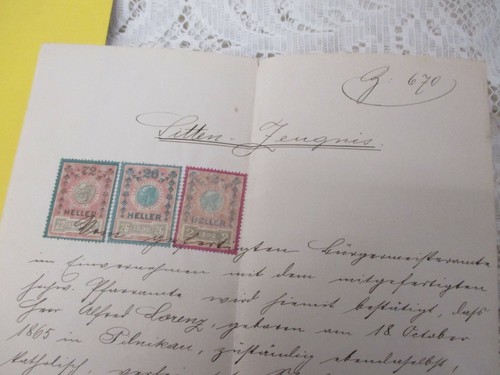 Z. 670
Sitten-Zeugnis.
72 26 2
HELLER HELLER HELLER
Von gefertigten Bürgermeisteramte
im Einvernehmen mit dem mitgefertigten
hochw. Pfarramte wird hiemit bestätigt, daß
Herr Alfred Lorenz, geboren am 18. October
1865 in Pilnikau, zuständig ebendaselbst,
katholisch,